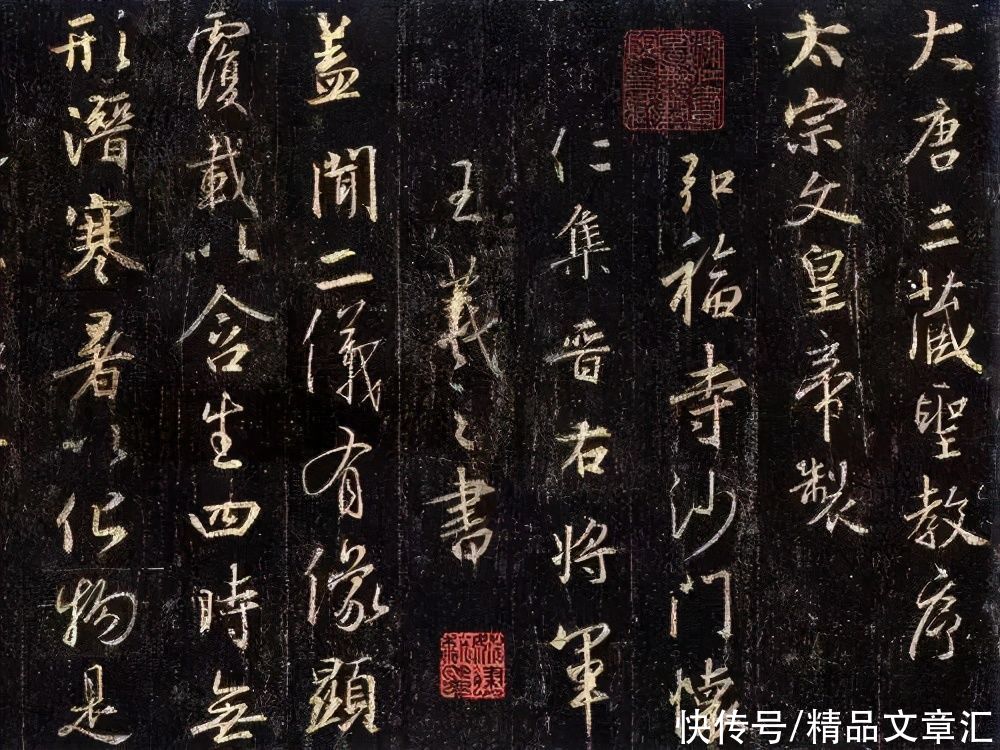 大唐三藏聖教序
太宗文皇帝製
弘福寺沙門懷
仁集晋右將軍
王羲之書
蓋聞二儀有像顯
覆載以含生四時無
形潛寒暑以化物是
快传号/精品文章汇